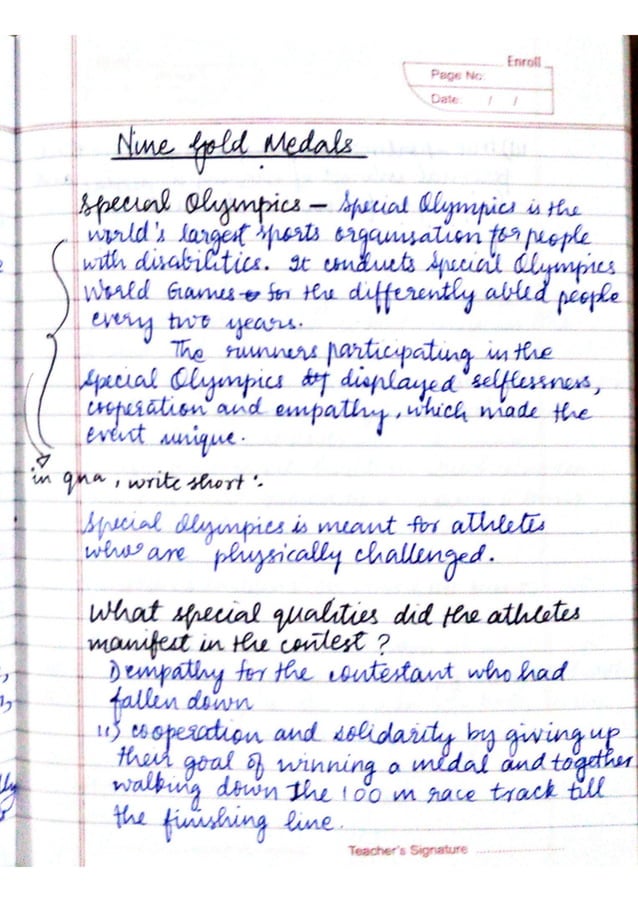 Enroll
Page No:
Date: / /
Nine Gold Medals
Special Olympics – Special Olympics is the
world's largest sports organisation for people
with disabilities. It conducts Special Olympics
World Games for the differently abled people
every two years.
The runners participating in the
Special Olympics displayed selflessness,
cooperation and empathy, which made the
event unique.
in qna, write short :
Special Olympics is meant for athletes
who are physically challenged.
What special qualities did the athletes
manifest in the contest ?
i) empathy for the contestant who had
fallen down
ii) cooperation and solidarity by giving up
their goal of winning a medal and together
walking down the 100 m race track till
the finishing line.
Teacher's Signature